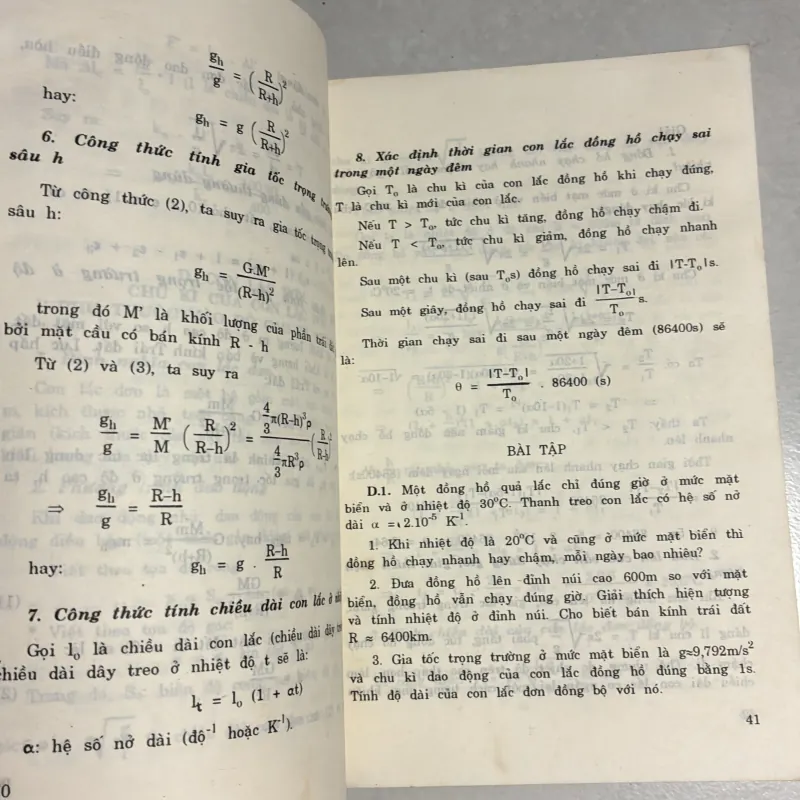 gh/g = (R/R+h)²
hay:
gh = g (R/R+h)²
6. Công thức tính gia tốc trọng trường
sâu h
Từ công thức (2), ta suy ra gia tốc trọng
sâu h:
gh = G.M'/(R–h)²
trong đó M' là khối lượng của phần trái
bởi mặt cầu có bán kính R - h
Từ (2) và (3), ta suy ra
gh/g = M'/M (R/R–h)² = 4/3 π(R–h)³ρ / 4/3 πR³ρ (R/R–h
⇒ gh/g = R–h/R
hay: gh = g . R–h/R
7. Công thức tính chiều dài con lắc ở
Gọi l₀ là chiều dài con lắc (chiều dài dây
chiều dài dây treo ở nhiệt độ t sẽ là:
lt = l₀ (1 + αt)
α: hệ số nở dài (độ⁻¹ hoặc K⁻¹).
0
8. Xác định thời gian con lắc đồng hồ chạy sai
trong một ngày đêm
Gọi T₀ là chu kì của con lắc đồng hồ khi chạy đúng,
T là chu kì mới của con lắc.
Nếu T > T₀, tức chu kì tăng, đồng hồ chạy chậm đi.
Nếu T < T₀, tức chu kì giảm, đồng hồ chạy nhanh
lên.
Sau một chu kì (sau T₀s) đồng hồ chạy sai đi |T-T₀|s.
Sau một giây, đồng hồ chạy sai đi |T–T₀|/T₀ s.
Thời gian chạy sai đi sau một ngày đêm (86400s) sẽ
là:
θ = |T–T₀|/T₀ . 86400 (s)
BÀI TẬP
D.1. Một đồng hồ quả lắc chỉ đúng giờ ở mức mặt
biển và ở nhiệt độ 30°C. Thanh treo con lắc có hệ số nở
dài α = 2.10⁻⁵ K⁻¹.
1. Khi nhiệt độ là 20°C và cũng ở mức mặt biển thì
đồng hồ chạy nhanh hay chậm, mỗi ngày bao nhiêu?
2. Đưa đồng hồ lên đỉnh núi cao 600m so với mặt
biển, đồng hồ vẫn chạy đúng giờ. Giải thích hiện tượng
và tính nhiệt độ ở đỉnh núi. Cho biết bán kính trái đất
R ≈ 6400km.
3. Gia tốc trọng trường ở mức mặt biển là g≈9,792m/s²
và chu kì dao động của con lắc đồng hồ đúng bằng 1s.
Tính độ dài của con lắc đơn đồng bộ với nó.
41